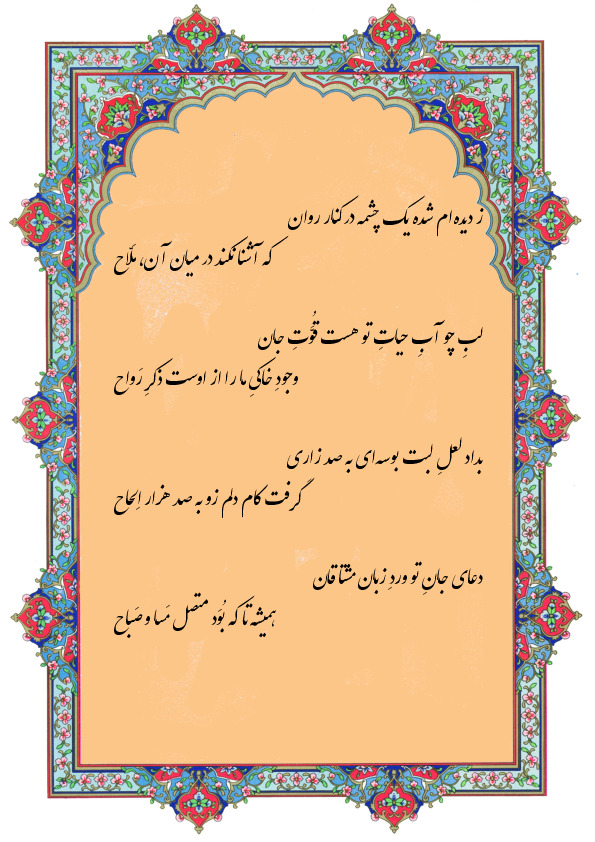 ز دیده ام شده یک چشمه در کنار روان
که آشنا نکند در میان آن، ملّاح
لبِ چو آبِ حیاتِ تو هست قُوّتِ جان
وجودِ خاکیِ ما را از اوست ذکرِ رَواح
بداد لعلِ لبت بوسه‌ای به صد زاری
گرفت کام دلم زو به صد هزار اِلحاح
دعای جانِ تو وردِ زبان مشتاقان
همیشه تا که بُوَد متصل مَسا و صَباح